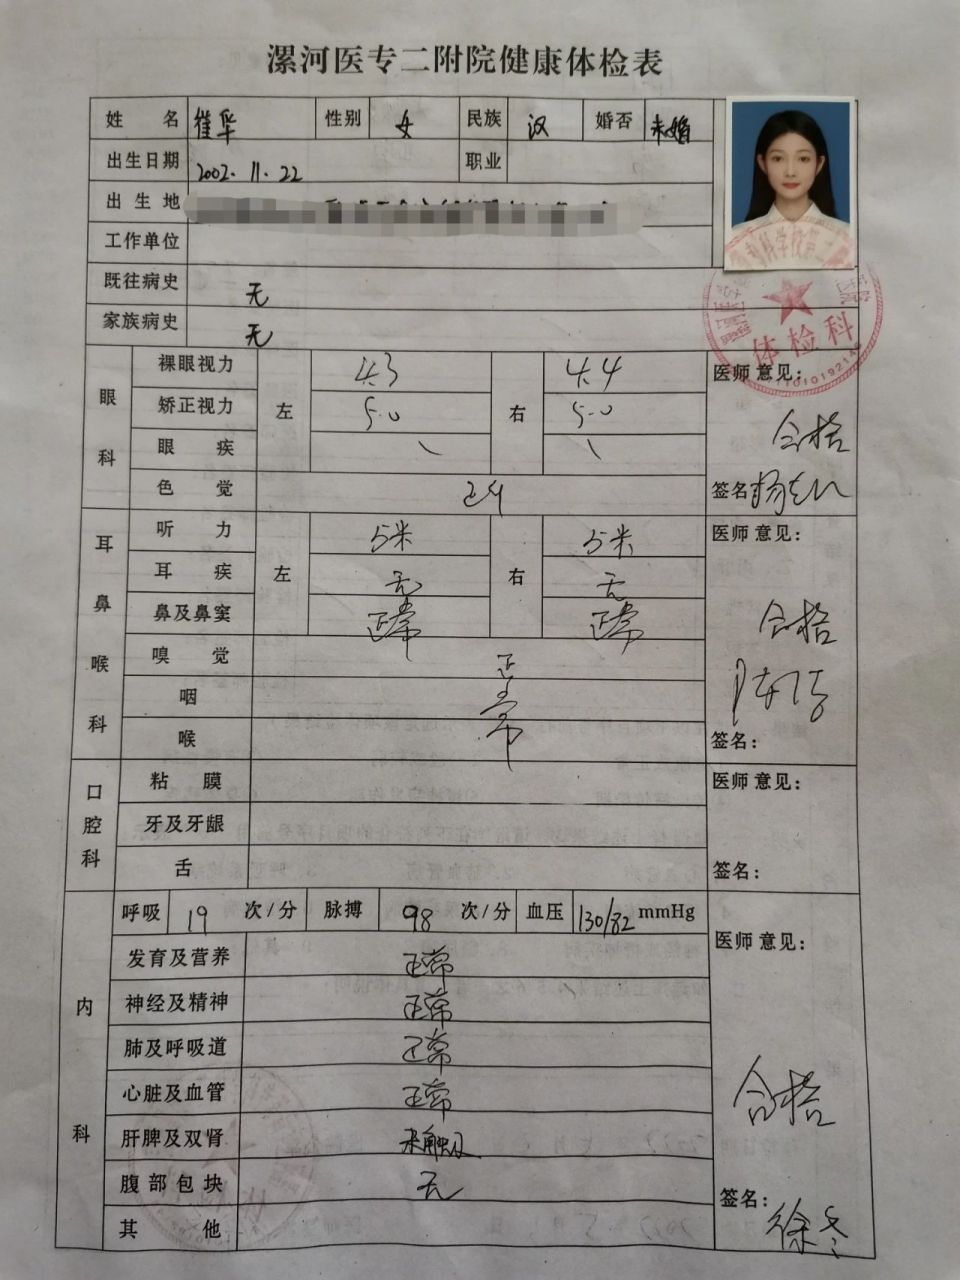 漯河医专二附院健康体检表
姓 名 崔华 性别 女 民族 汉 婚否 未婚
出生日期 2002.11.22 职业
出生地
工作单位
既往病史 无
家族病史 无
眼科 裸眼视力 左 4.3 右 4.4 医师意见:
矫正视力 5.0 5.0 合格
眼 疾 \ \
色 觉 正常 签名
耳鼻喉科 听 力 左 5米 右 5米 医师意见:
耳 疾 无 无
鼻及鼻窦 正常 正常 合格
嗅 觉 正常
咽
喉 签名:
口腔科 粘 膜 医师意见:
牙及牙龈
舌 签名:
内科 呼吸 19 次/分 脉搏 98 次/分 血压 130/82 mmHg 医师意见:
发育及营养 正常
神经及精神 正常
肺及呼吸道 正常
心脏及血管 正常 合格
肝脾及双肾 未触及
腹部包块 无 签名: 徐冬
其 他
体检科